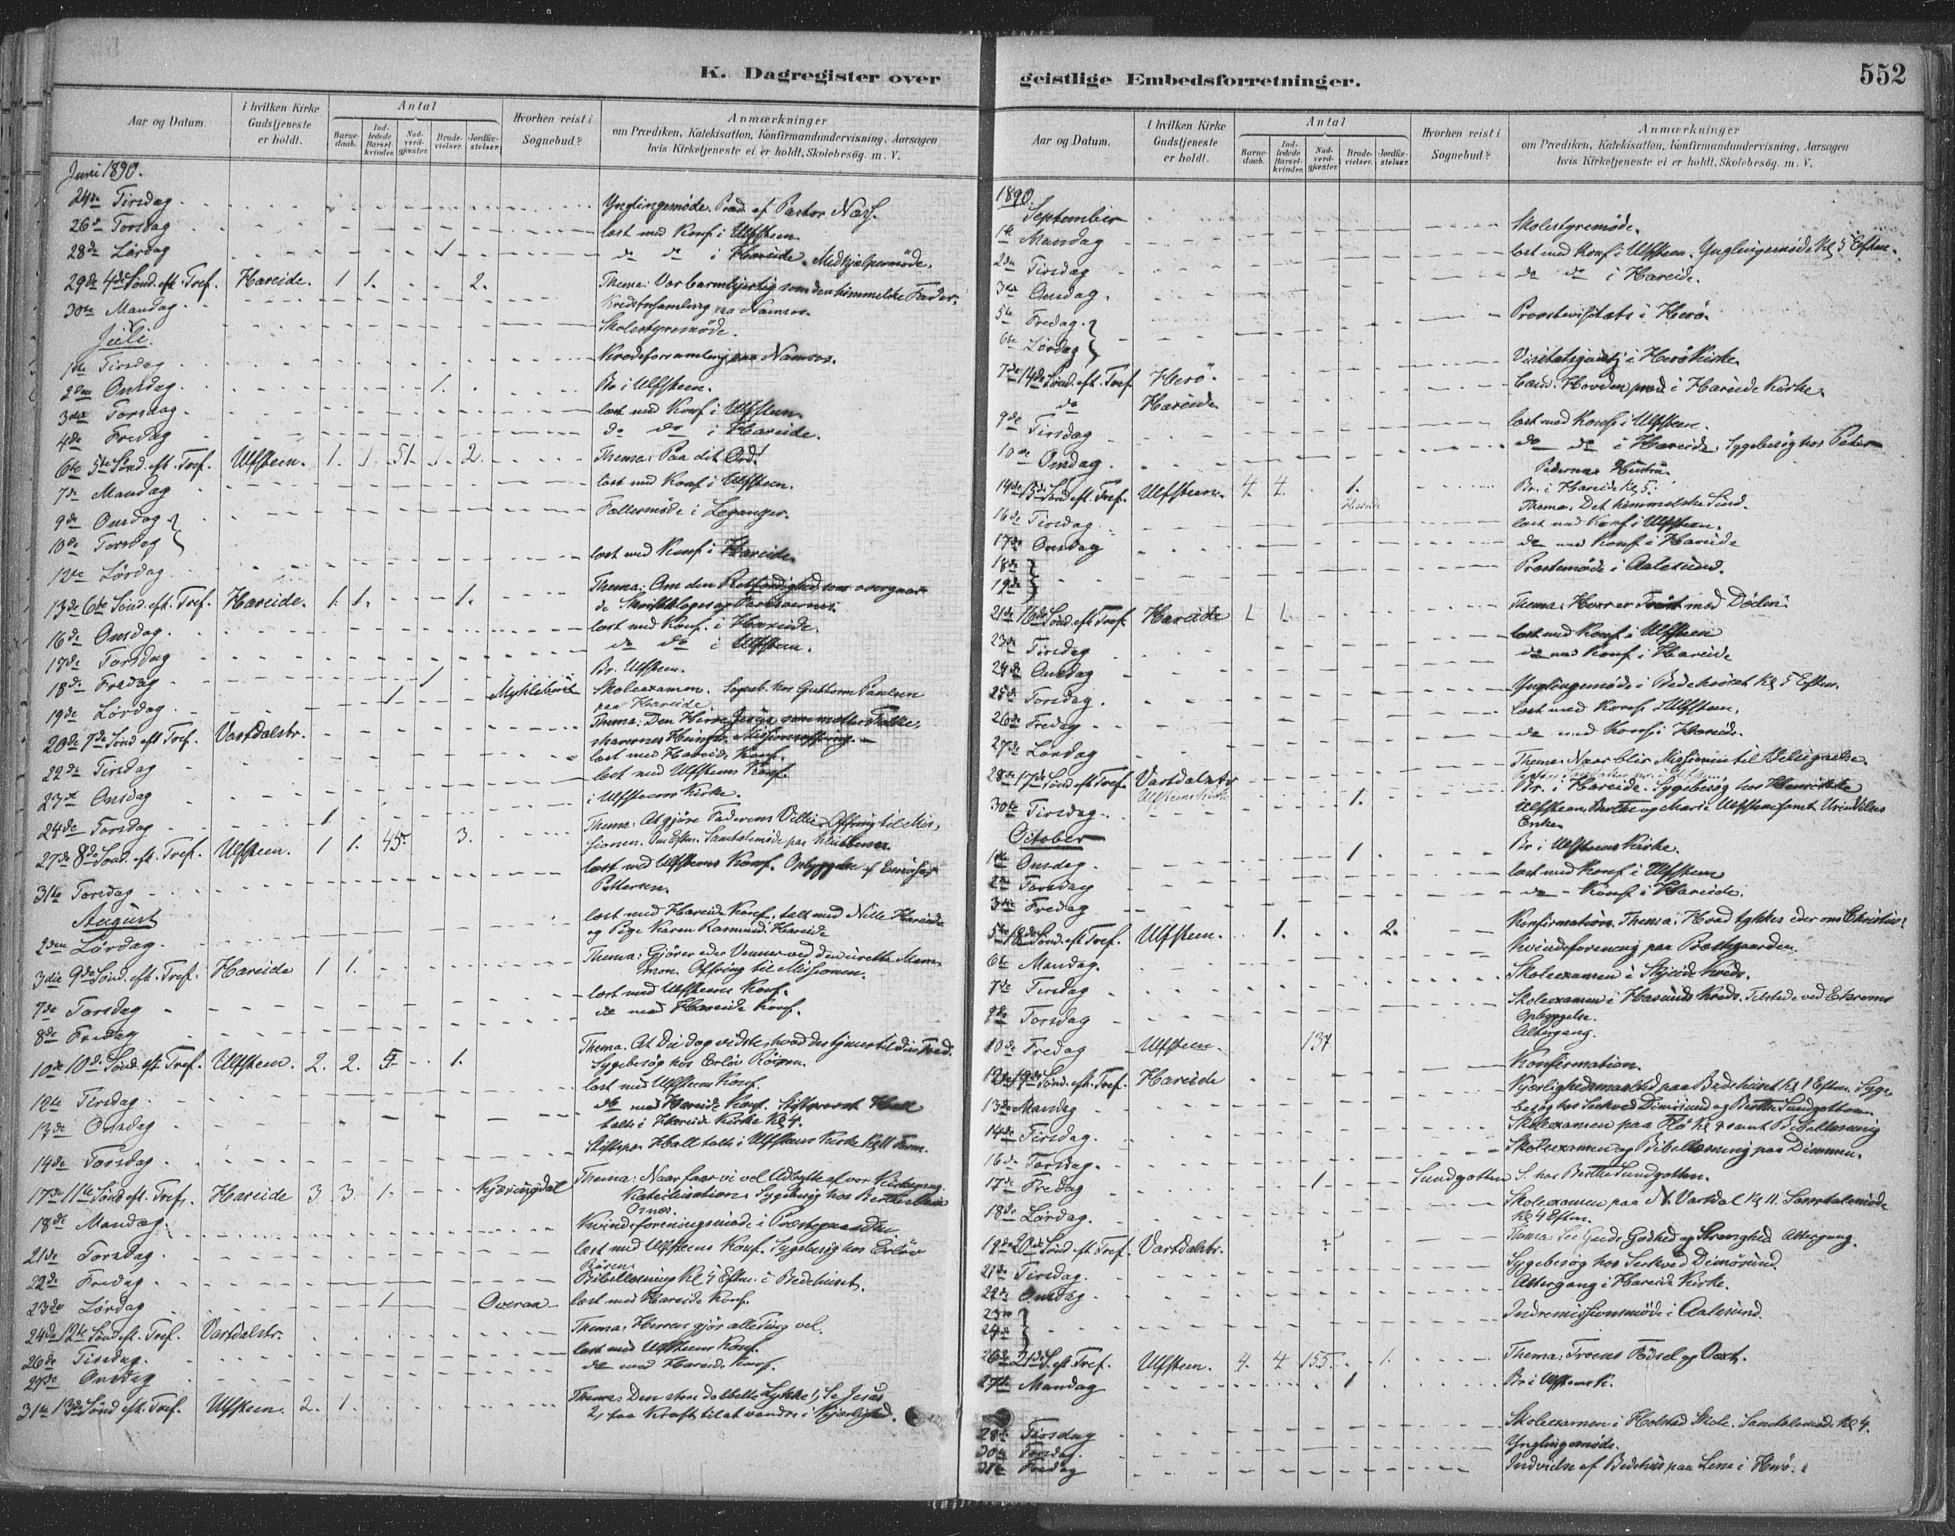 K. Dagregister over
Aar og Datum.
I hvilken Kirke Gudstjeneste er holdt.
Antal
Barnedaab.
Indledede Barselkvinder.
Nadverdgjæster.
Brudevielser.
Jordfæstelser.
Hvorhen reist i Sognebud?
Anmærkninger
om Prædiken, Katekisation, Konfirmandundervisning, Aarsagen
hvis Kirketjeneste ei er holdt, Skolebesøg m. V.
Juni 1890.
24de Tirsdag Ynglingemøde. Præd. af Pastor
26de Torsdag læst med Konf. i Ulfsteen
28de Lørdag 1 do do i Hareide. Medhjælpermøde.
29de 4de Sønd. eft. Tref. Hareide. 1 1. 2. Thema: Vær barmhjertig som den himmelske Fader.
30te Mandag Kredsforsamling paa Namsos.
Juli. Skolestyremøde.
1ste Tirsdag Kredsforsamling paa Namsos.
2den Onsdag. 1. Br. i Ulfsteen.
3die Torsdag læst med Konf. i Ulfsteen
4de Fredag do do i Hareide.
6te 5te Sønd. eft. Tref. Ulfsteen. 1. 1. 51. 1. 2. Thema: Paa dit Ord!
7de Mandag læst med Konf. i Ulfsteen.
9de Onsdag } Fællesmøde i Leganger.
10de Torsdag }
12te Lørdag læst med Konf. i Hareide.
13de 6te Sønd. eft. Tref. Hareide. 1. 1. 1. Thema: Om den Retfærdighed som overgaar
de Skriftkloges og Farisæernes.
16de Onsdag. læst med Konf. i Hareide.
17de Torsdag do do i Ulfsteen.
18de Fredag 1 Br. Ulfsteen.
19de Lørdag 1 Myklebust Skoleexamen. Sogneb. hos Guttorm Paulsen
paa Hareide.
20de 7de Sønd. eft. Tref. Vartdalstr. Thema: Den Herre Jesus,
22de Tirsdag læst med Hareide Konf.
23de Onsdag læst med Ulfsteens Konf.
24de Torsdag 1 i Ulfsteens Kirke.
27de 8de Sønd. eft. Tref. Ulfsteen. 1 1. 45. 3. Thema: At gjøre Faderens Villie. Offring til Mis-
sionen. Om Eften. Samtalemøde paa
31te Torsdag læst med Ulfsteens Konf. Opbyggelse af
August Pettersen.
2den Lørdag. læst med Hareide Konf., talt med Nille Hareide
og Pige Karen Rasmusd. Hareide
3die 9de Sønd. eft. Tref. Hareide 1 1. Thema: Gjører eder Venner ved den urette Mam-
mon. Offring til Missionen.
7de Torsdag læst med Ulfsteens Konf.
8de Fredag do med Hareide Konf.
10de 10de Sønd. eft. Tref. Ulfsteen. 2. 2. 5. 1. Thema: At du i dag vidste, hvad der tjener til din Fred.
Sygebesøg hos Erlov Røren.
12te Tirsdag læst med Ulfsteens Konf.
13de Onsdag do med Hareide Konf. Stiftsprovst Hall
talte i Hareide Kirke Kl 4.
14de Torsdag Stiftspr. Hall talte i Ulfsteens Kirke Kl 11 Form.
17de 11te Sønd. eft. Tref. Hareide 3. 3. 1. Kjøringdal Thema: Naar faar vi vel Udbytte af vor Kirkegang.
Katechisation. Sygebesøg hos
Osnes.
18de Mandag. Kvindeforeningsmøde i Præstegaarden
21de Torsdag læst med Ulfsteens Konf. Sygebesøg hos Erlov
Røren.
22de Fredag Bibellæsning Kl 5 Eften. i Bedehuset.
23de Lørdag 1 Overaa læst med Hareide Konf.
24de 12te Sønd. eft. Tref. Vartdalstr. Thema: Herren gjør alle Ting vel.
26de Tirsdag. læst med Ulfsteens Konf.
27de Onsdag do med Hareide Konf.
31te 13de Sønd. eft. Tref. Ulfsteen. 2. 1. Thema: Den store dobbelte Lykke! 1, Se Jesus
2, faa Kraft til at vandre i Kjærlighed.
geistlige Embedsforretninger.
552
Aar og Datum.
I hvilken Kirke Gudstjeneste er holdt.
Antal
Barnedaab.
Indledede Barselkvinder.
Nadverdgjæster.
Brudevielser.
Jordfæstelser.
Hvorhen reist i Sognebud?
Anmærkninger
om Prædiken, Katekisation, Konfirmandundervisning, Aarsagen
hvis Kirketjeneste ei er holdt, Skolebesøg m. V.
1890.
September
1ste Mandag Skolestyremøde.
2den Tirsdag læst med Konf. i Ulfsteen. Ynglingemøde Kl 5 Eften.
3die Onsdag. do do i Hareide.
5te Fredag. } Provstevisitats i Herø.
6te Lørdag }
7de 14de Sønd. eft. Tref. Herø. Visitatsgudstj. i Herø Kirke.
do Hareide Cand. Hovden præd. i Hareide Kirke.
9de Tirsdag læst med Konf. i Ulfsteen.
10de Onsdag do do i Hareide. Sygebesøg hos Peter
Pedersens Hustru.
14de 15de Sønd. eft. Tref. Ulfsteen. 4. 4. 1. Hareide Br. i Hareide Kl 5.
Thema: Det himmelske Sind.
16de Tirsdag læst med Konf. i Ulfsteen.
17de Onsdag do med Konf. i Hareide
18de } Præstemøde i Aalesund.
19de }
21de 16de Sønd. eft. Tref. Hareide 1. 1. Thema: Her er Trøst mod Døden!
23de Tirsdag læst med Konf. i Ulfsteen
24de Onsdag do med Konf. i Hareide
25de Torsdag. Ynglingemøde i Bedehuset Kl 5 Eften.
26de Fredag læst med Konf. i Ulfsteen.
27de Lørdag do med Konf. i Hareide.
28de 17de Sønd. eft. Tref. Vartdalstr. Thema: Naar blir Missionen til Velsignelse.
Ulfsteens Kirke
30te Tirsdag. 1. Br. i Hareide. Sygebesøg hos Henrikke
Ulfsteen, Berthe og Marie Ulfsteen samt
October Enke.
1ste Onsdag. 1 Br. i Ulfsteens Kirke.
2den Torsdag læst med Konf. i Ulfsteen
3die Fredag do – Konf. i Hareide.
5te 18de Sønd. eft. Tref. Ulfsteen. 1. 2. Konfirmation. Thema: Hvad tykkes eder om Christus?
6te Mandag. Kvindeforening paa Præstegaarden
7de Tirsdag Skoleexamen i Skeide Kreds.
9de Torsdag Skoleexamen i Hasunds Kreds. Tilstede ved Ekrems
Opbyggelse.
10de Fredag Ulfsteen. 137 Altergang.
12te 19de Sønd. eft. Tref. Hareide Konfirmation.
13de Mandag Kjærlighedsmaaltid paa Bedehuset Kl 1 Eften. Syge-
besøg hos Sivert Dimøsund og Berthe Sundgotten.
14de Tirsdag. Skoleexamen paa Flø Kl 9 samt Bibellæsning
16de Torsdag. Skoleexamen og Bibellæsning paa Dimmen.
17de Fredag 1 Sundgotten S. hos Berthe Sundgotten.
18de Lørdag. Skoleexamen paa N. Vartdal Kl 11. Samtalemøde
Kl 4 Eften.
19de 20de Sønd. eft. Tref. Vartdalstr. ? Thema: Se Guds Godhed og Strenghed. Altergang.
21de Tirsdag. Sygebesøg hos Sivert Dimøsund.
22de Onsdag Altergang i Hareide Kirke.
23de } Indremissionsmøde i Aalesund.
24de }
26de 21de S. eft. Tref. Ulfsteen. 4. 4 155. 1. Thema: Troens Fødsel og Vext.
27de Mandag 1 Br. i Ulfsteen K.
28de Tirsdag Skoleexamen i Holstad Skole. Samtalemøde Kl 4.
30te Torsdag. Ynglingemøde.
31te Fredag Indvielse af Bedehus paa Leine i Herø.